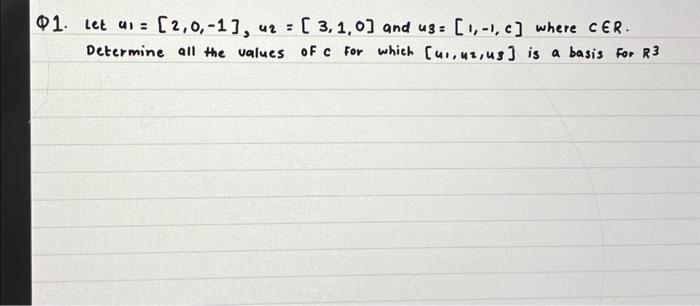 Q1. Let u1 = [2,0,-1], u2 = [3,1,0] and u3 = [1,-1,c] where C∈R.
Determine all the values of c for which [u1,u2,u3] is a basis for R3